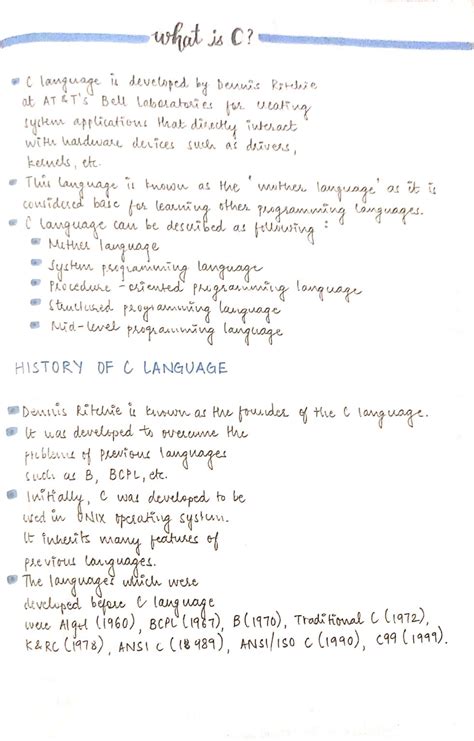 what is C?
C language is developed by Dennis Ritchie
at AT&T's Bell Laboratories for creating
system applications that directly interact
with hardware devices such as drivers,
kernels, etc.
This language is known as the 'mother language' as it is
considered base for learning other programming languages.
C language can be described as following :
Mother language
System programming language
Procedure-oriented programming language
Structured programming language
Mid-level programming language
HISTORY OF C LANGUAGE
Dennis Ritchie is known as the founder of the C language.
It was developed to overcome the
problems of previous languages
such as B, BCPL, etc.
Initially, C was developed to be
used in UNIX operating system.
It inherits many features of
previous languages.
The languages which were
developed before C language
were Algol (1960), BCPL (1967), B (1970), Traditional C (1972),
K&RC (1978), ANSI C (18989), ANSI/ISO C (1990), C99 (1999).